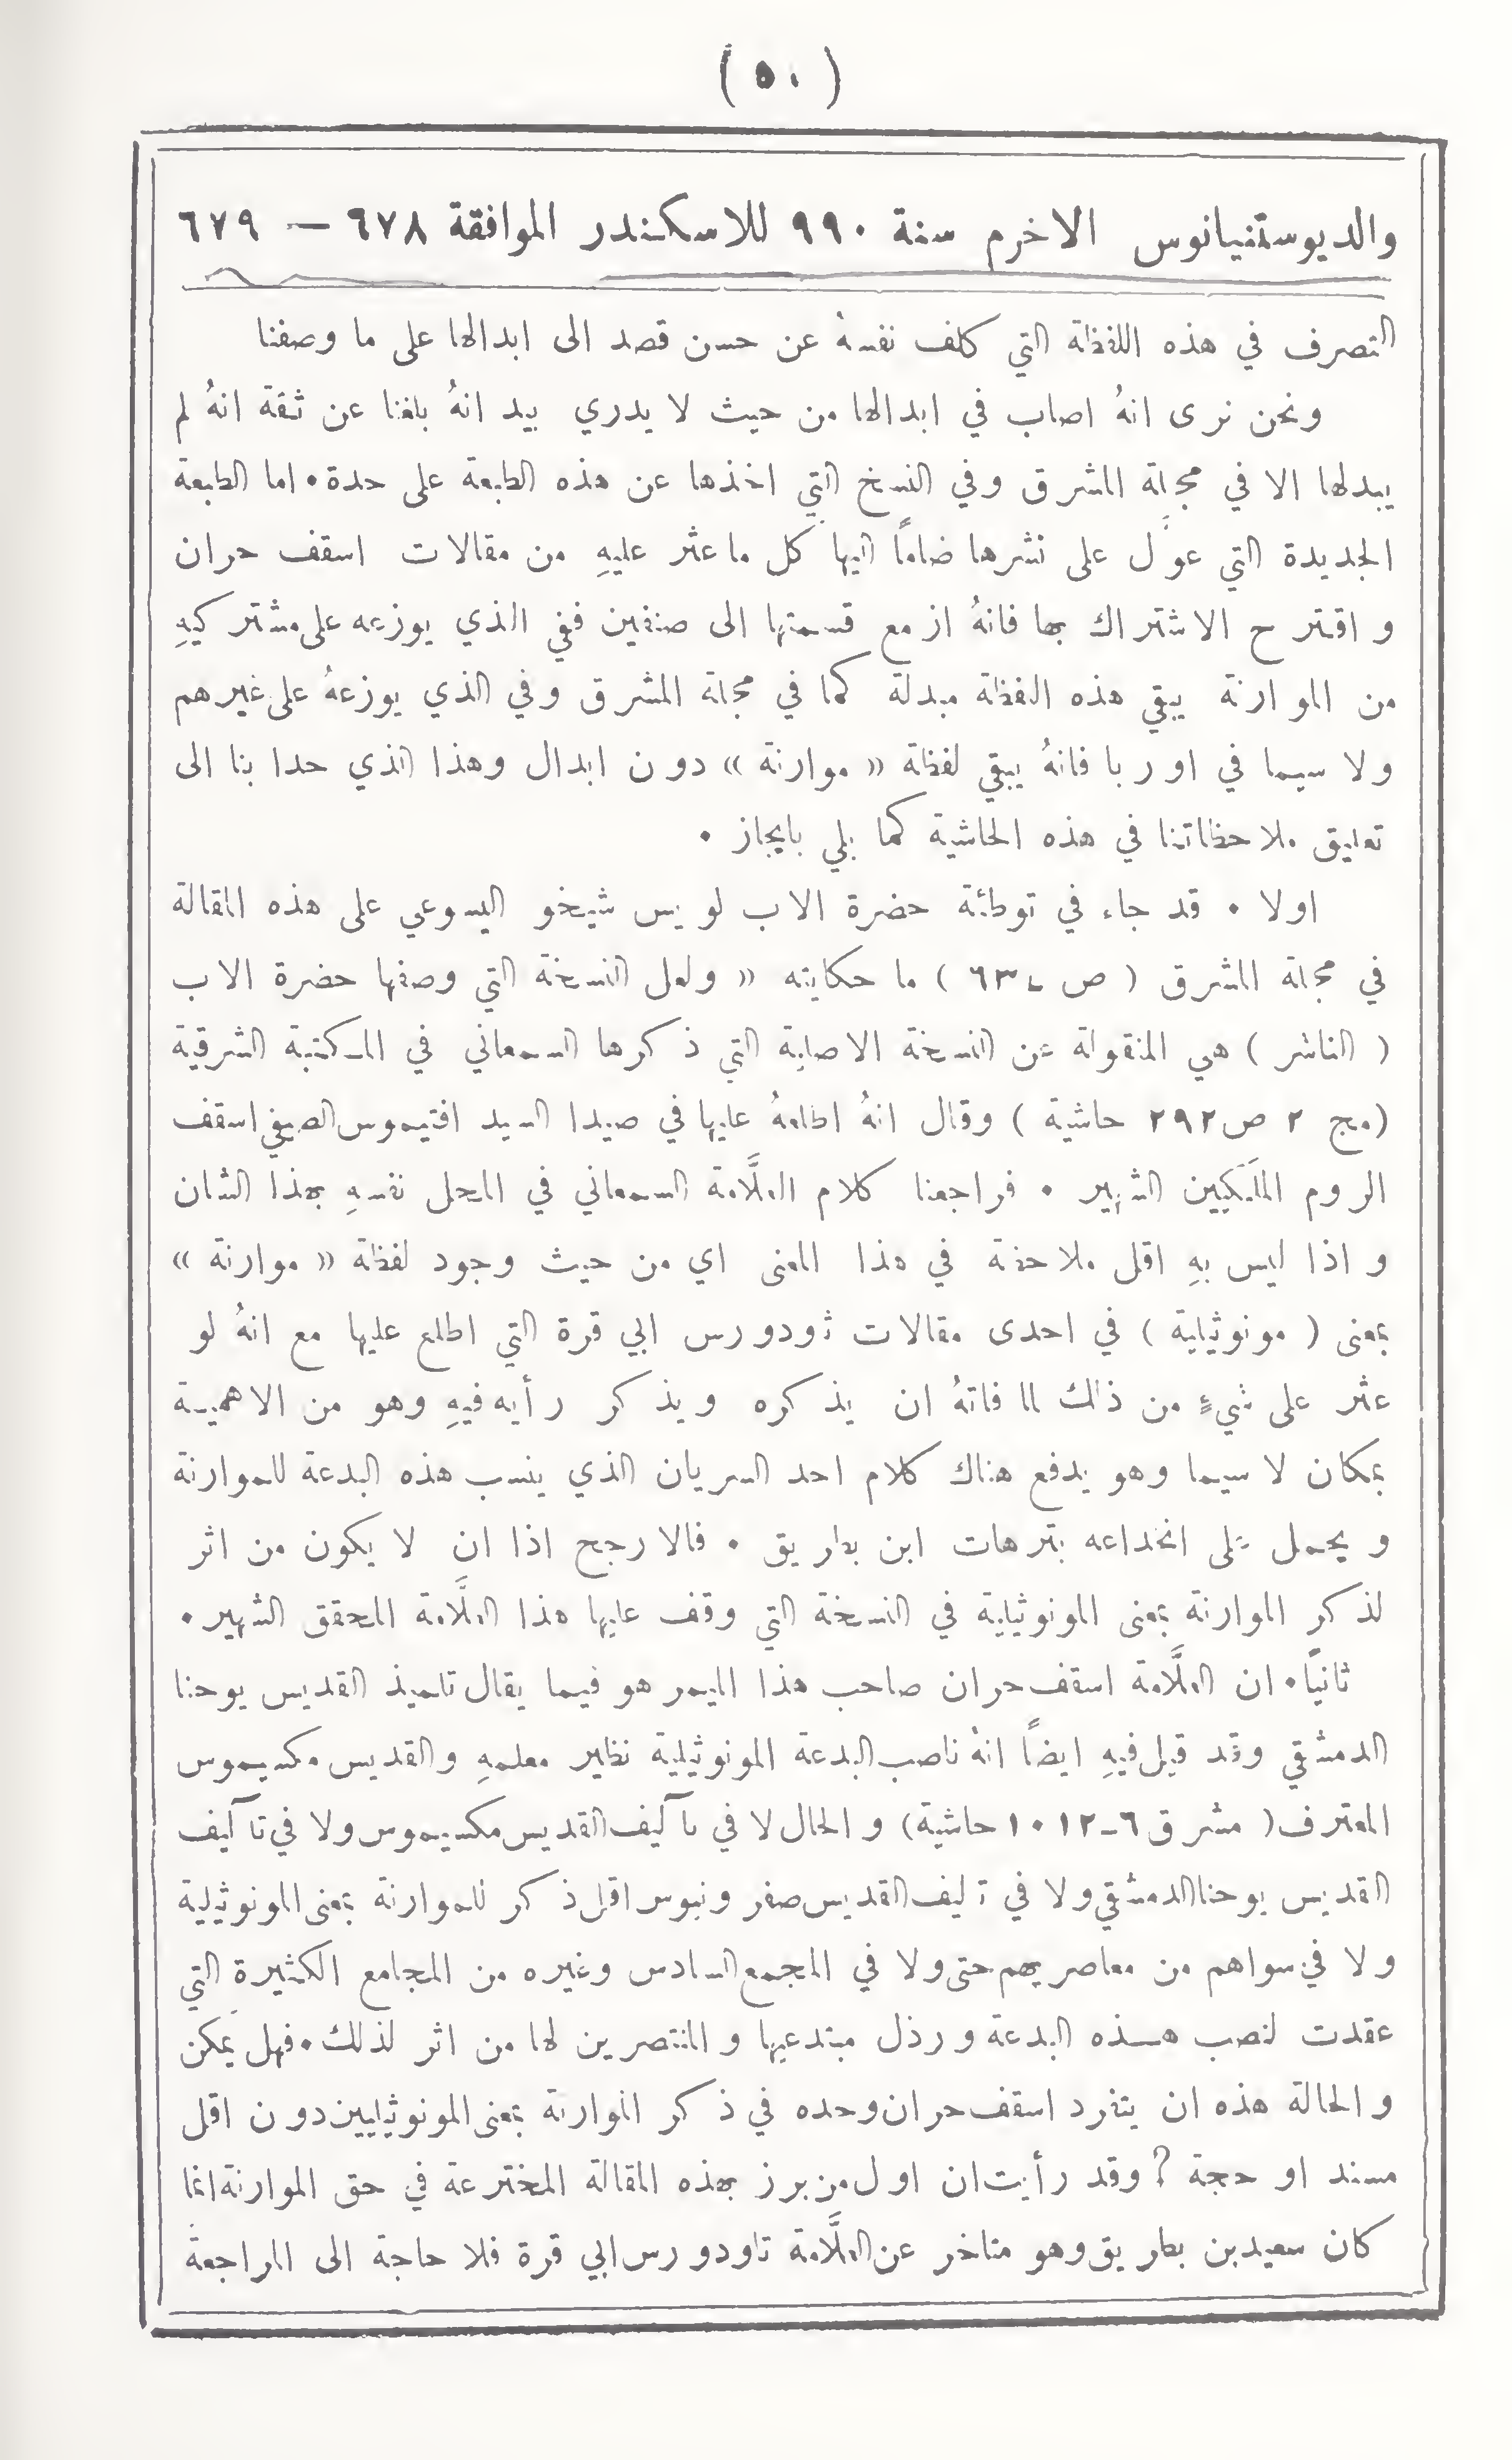 ( ٥٠ )
والديوستنيانوس الاخرم سنة ٩٩٠ للاسكندر الموافقة ٦٧٨ — ٦٧٩
التصرف في هذه اللفظة التي كلف نفسهُ عن حسن قصد الى ابدالها على ما وصفنا
ونحن نرى انهُ اصاب في ابدالها من حيث لا يدري بيد انهُ بلغنا عن ثقة انهُ لم
يبدلها الا في مجلة المشرق وفي النسخ التي اخذها عن هذه الطبعة على حدة • اما الطبعة
الجديدة التي عوَّل على نشرها ضاماً اليها كل ما عثر عليهِ من مقالات اسقف حران
واقترح الاشتراك بها فانهُ ازمع قسمتها الى صنفين ففي الذي يوزعه على مشتركيهِ
من الموارنة يبقي هذه اللفظة مبدلة كما في مجلة المشرق وفي الذي يوزعهُ على غيرهم
ولا سيما في اوربا فانهُ يبقي لفظة « موارنة » دون ابدال وهذا الذي حدا بنا الى
تعليق ملاحظاتنا في هذه الحاشية كما يلي بايجاز •
اولا • قد جاء في توطئة حضرة الاب لويس شيخو اليسوعي على هذه المقالة
في مجلة المشرق ( ص ٦٣٤ ) ما حكايته « ولعل النسخة التي وصفها حضرة الاب
( الناشر ) هي المنقولة عن النسخة الاصلية التي ذكرها السمعاني في المكتبة الشرقية
(مج ٢ ص ٢٩٢ حاشية ) وقال انهُ اطلعهُ عليها في صيدا السيد افتيموس الصيفي اسقف
الروم الملَكيين الشهير • فراجعنا كلام العلَّامة السمعاني في المحل نفسهِ بهذا الشان
واذا ليس بهِ اقل ملاحظة في هذا المعنى اي من حيث وجود لفظة « موارنة »
بمعنى ( مونوثيلية ) في احدى مقالات ثودورس ابي قرة التي اطلع عليها مع انهُ لو
عثر على شيءٍ من ذلك لما فاتهُ ان يذكره ويذكر رأيه فيهِ وهو من الاهمية
بمكان لا سيما وهو يدفع هناك كلام احد السريان الذي ينسب هذه البدعة للموارنة
ويحمل على انخداعه بترهات ابن بطريق • فالارجح اذا ان لا يكون من اثر
لذكر الموارنة بمعنى المونوثيلية في النسخة التي وقف عليها هذا العلَّامة المحقق الشهير •
ثانيًا • ان العلَّامة اسقف حران صاحب هذا الميمر هو فيما يقال تلميذ القديس يوحنا
الدمشقي وقد قيل فيهِ ايضاً انهُ ناصب البدعة المونوثيلية نظير معلمهِ والقديس مكسيموس
المعترف ( مشرق ٦-١٠١٢ حاشية) والحال لا في تآليف القديس مكسيموس ولا في تآليف
القديس يوحنا الدمشقي ولا في تآليف القديس صفرونيوس اقل ذكر للموارنة بمعنى المونوثيلية
ولا في سواهم من معاصريهم حتى ولا في المجمع السادس وغيره من المجامع الكثيرة التي
عقدت لنصب هذه البدعة ورذل مبتدعيها والمنتصرين لها من اثر لذلك • فهل يمكن
والحالة هذه ان يتفرد اسقف حران وحده في ذكر الموارنة بمعنى المونوثيليين دون اقل
مسند او حجة ? وقد رأيت ان اول من برز بهذه المقالة المخترعة في حق الموارنة انما
كان سعيد بن بطريق وهو متاخر عن العلَّامة تاودورس ابي قرة فلا حاجة الى المراجعة